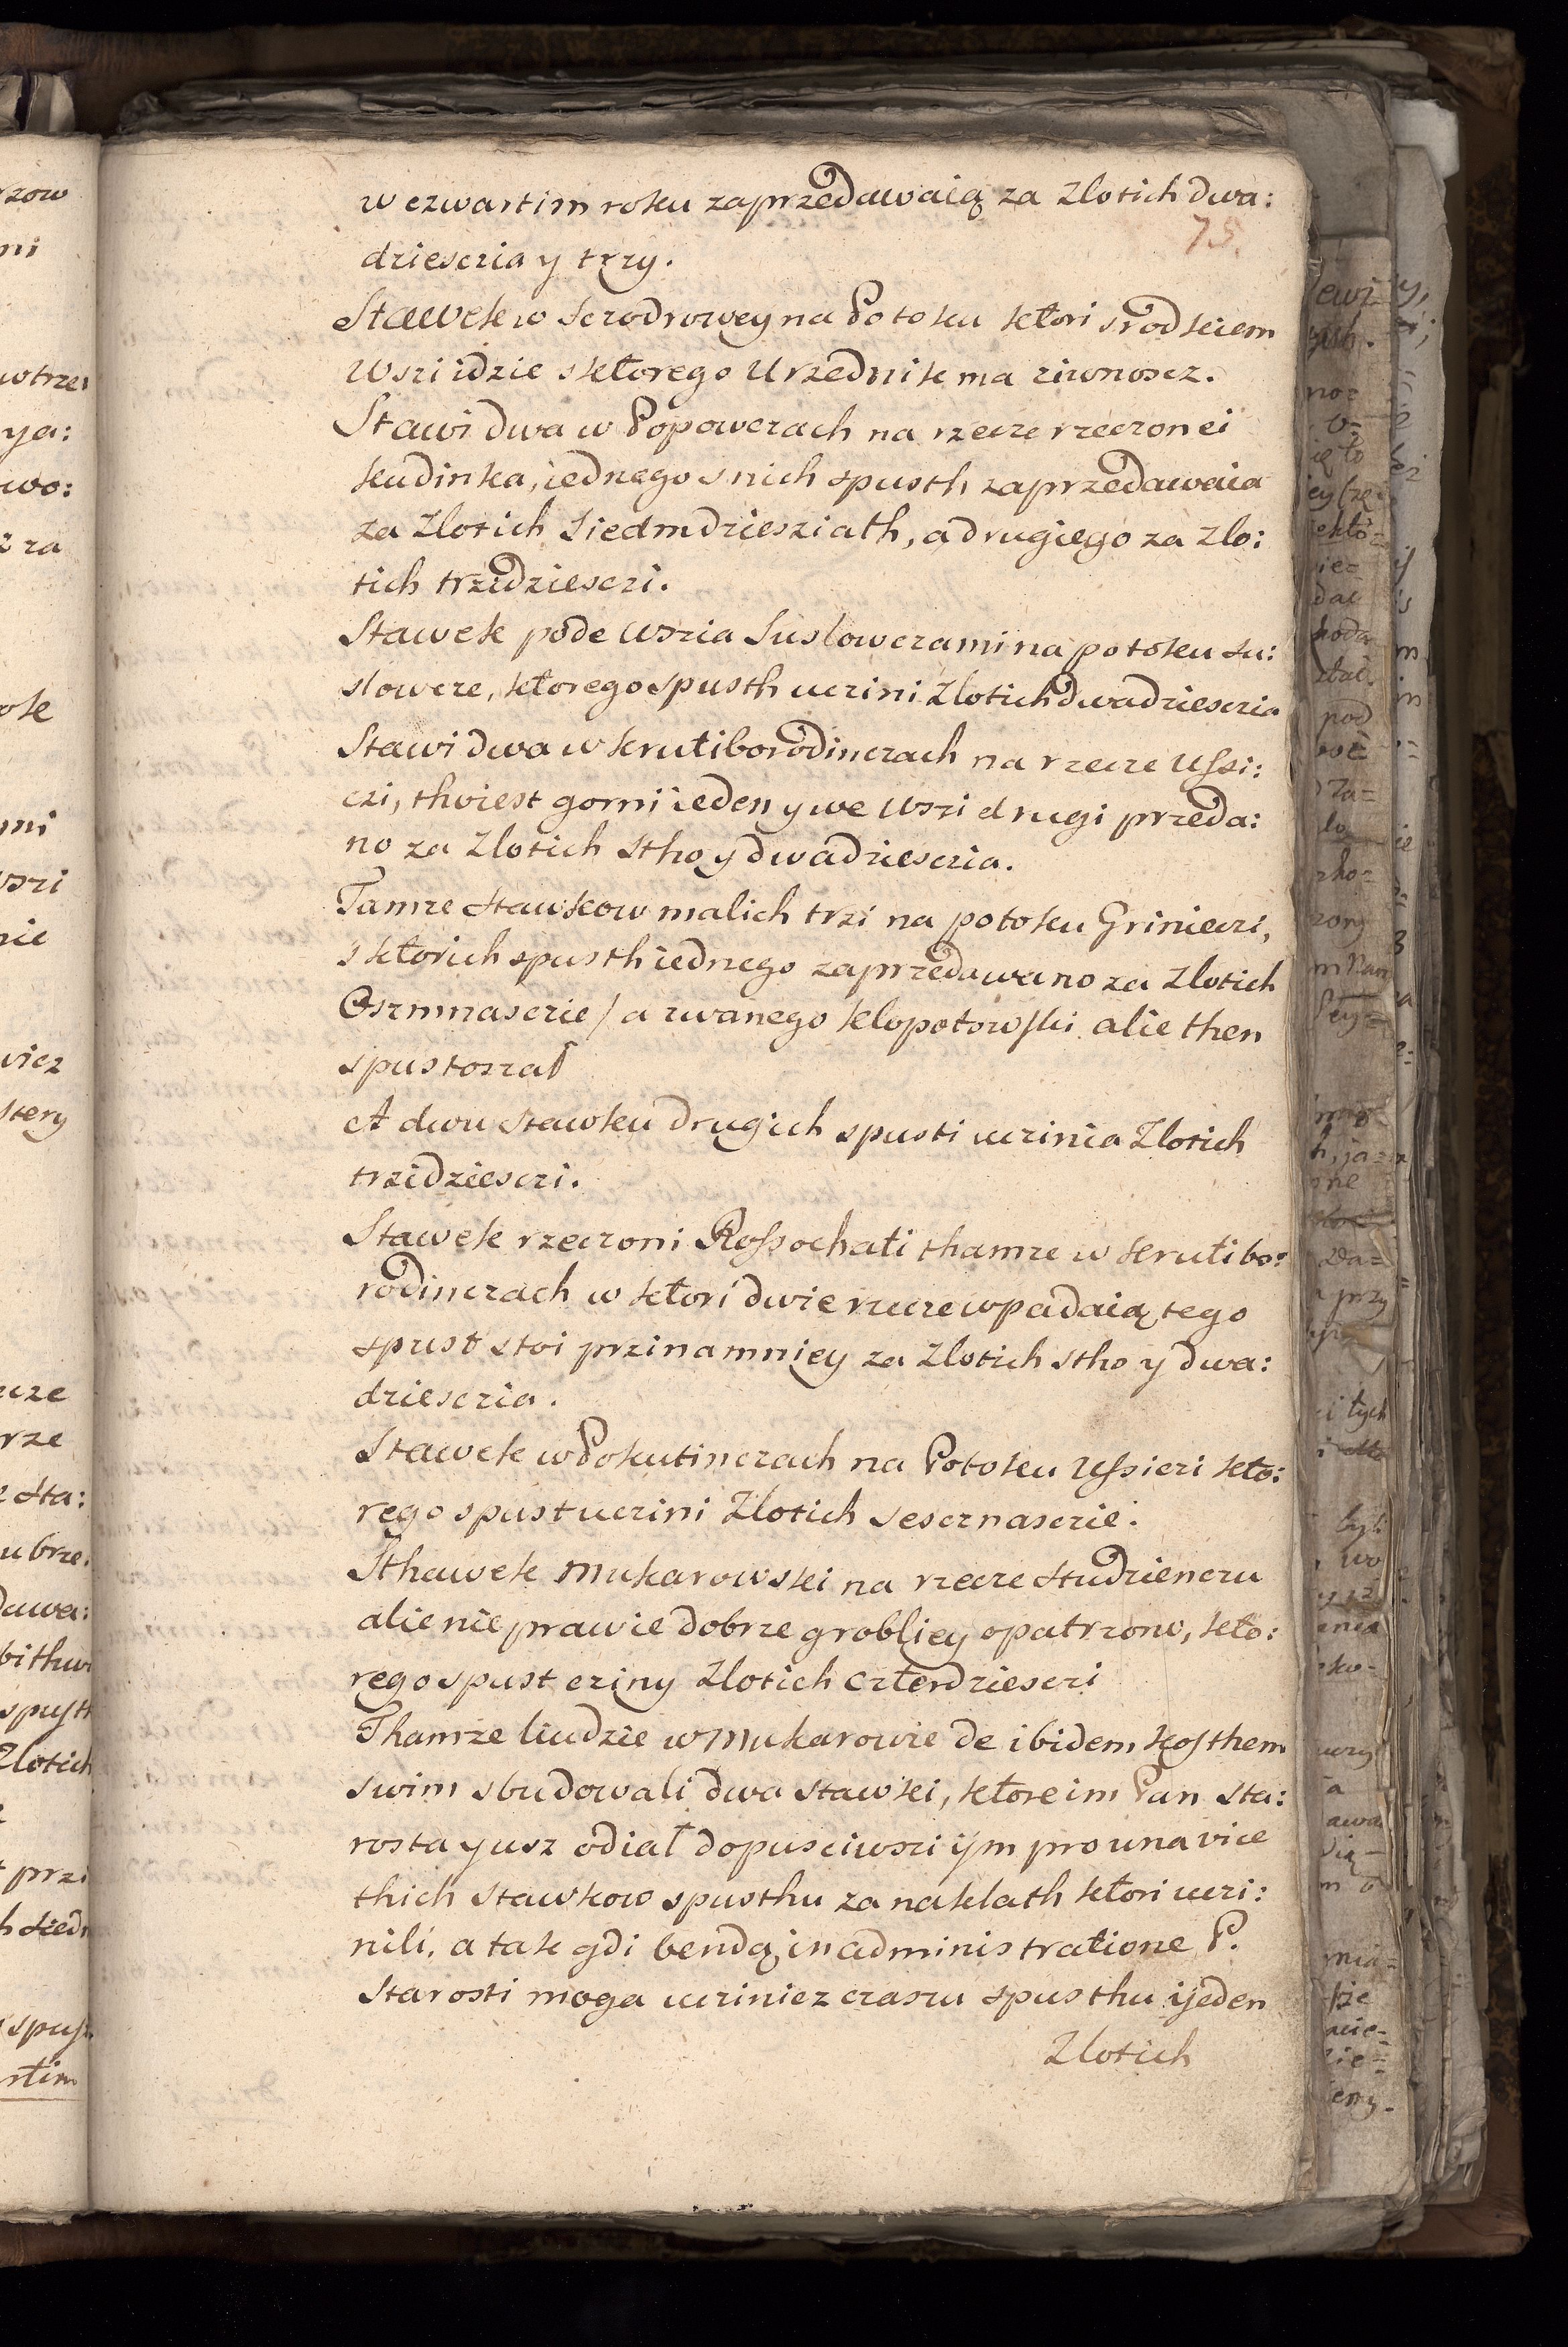 w czwartim roku zaprzedawaią za Zlotich dwa:
75.
dziesczia y trzy.
Stawek w Serodrowey na Potoku ktori srodkiem
Wszi idzie sktorego Urzednik ma ziwnoscz.
Stawi dwa w Popowczach na rzecze rzeczonei
kudinka, iednego snich spusth zaprzedawaia
za Zlotich Siedmdziesziath, a drugiego za Zlo:
tich trzidziesczi.
Stawek pode wszia Suslowczami na potoku su:
slowcze, ktorego spusth uczini Zlotich dwadziesczia
Stawi dwa w krutiborodinczach na rzecze Ussi:
czi, thoiest gorni ieden y we wszi drugi przeda:
no za Zlotich stho y dwadziesczia.
Tamze stawkow malich trzi na potoku Griniewzi,
sktorich spusth iednego zaprzedawano za Zlotich
Oszmnasczie / a zwanego klopotowski alie then
spustoszal
A dwu stawku drugich spusti uczinia Zlotich
trzidziesczi.
Stawek rzeczoni Rossochati thamze w krutibo:
rodinczach w ktori dwie rzecze wpadaią tego
spust stoi przinamniey za Zlotich stho y dwa:
dziesczia.
Stawek w Pokutinczach na Potoku Ussiczi kto:
rego spust uczini Zlotich sescznasczie.
Sthawek Mukarowski na rzecze studzienczu
alie nie prawie dobrze grobliey opatrzono, kto:
rego spust cziny Zlotich czterdziesczi
Thamze liudzie w Mukarowie de ibidem kosthem
swim sbudowali dwa stawki, ktore im Pan sta:
rosta yusz odial dopusciwszi ijm pro una vice
thich stawkow spusthu za naklath ktori uczi:
nili, a tak gdi bendą in administratione P.
Starosti moga ucziniez czaszu spusthu ijeden
Zlotich